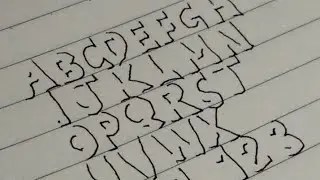 ABCDEFGH
IJKLMN
OPQRST
UVWX
123